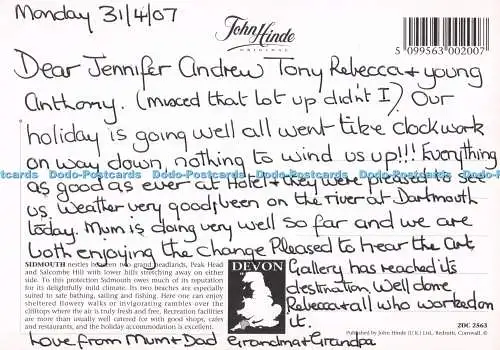 Monday 31/4/07
John Hinde
ORIGINAL
5 099563 002007
Dear Jennifer Andrew Tony Rebecca + young
Anthony. (muced that lot up didn't I) Our
holiday is going well all went like clockwork
on way down, nothing to wind us up!!! Everything
Dodo-Postcards Dodo-Postcards Dodo-Postcards Dodo-Postcards
as good as ever at Hotel + they were pleased to see
us. Weather very good, been on the river at Dartmouth
today. Mum is doing very well so far and we are
both enjoying the change Pleased to hear the Art
SIDMOUTH nestles between two grand headlands, Peak Head
and Salcombe Hill with lower hills stretching away on either
side. To this protection Sidmouth owes much of its reputation
for its delightfully mild climate. Its two beaches are especially
suited to safe bathing, sailing and fishing. Here one can enjoy
sheltered flowery walks or invigorating rambles over the
clifftops where the air is truly fresh and free. Recreation facilities
are more than usually well catered for with good shops, cafes
and restaurants, and the holiday accommodation is excellent.
DEVON
Gallery has reached its
destination. Well done,
Rebecca + all who worked on
it.
2DC 2563
Published by John Hinde (U.K.) Ltd., Redruth, Cornwall. ©
Love from Mum + Dad Grandma + Grandpa